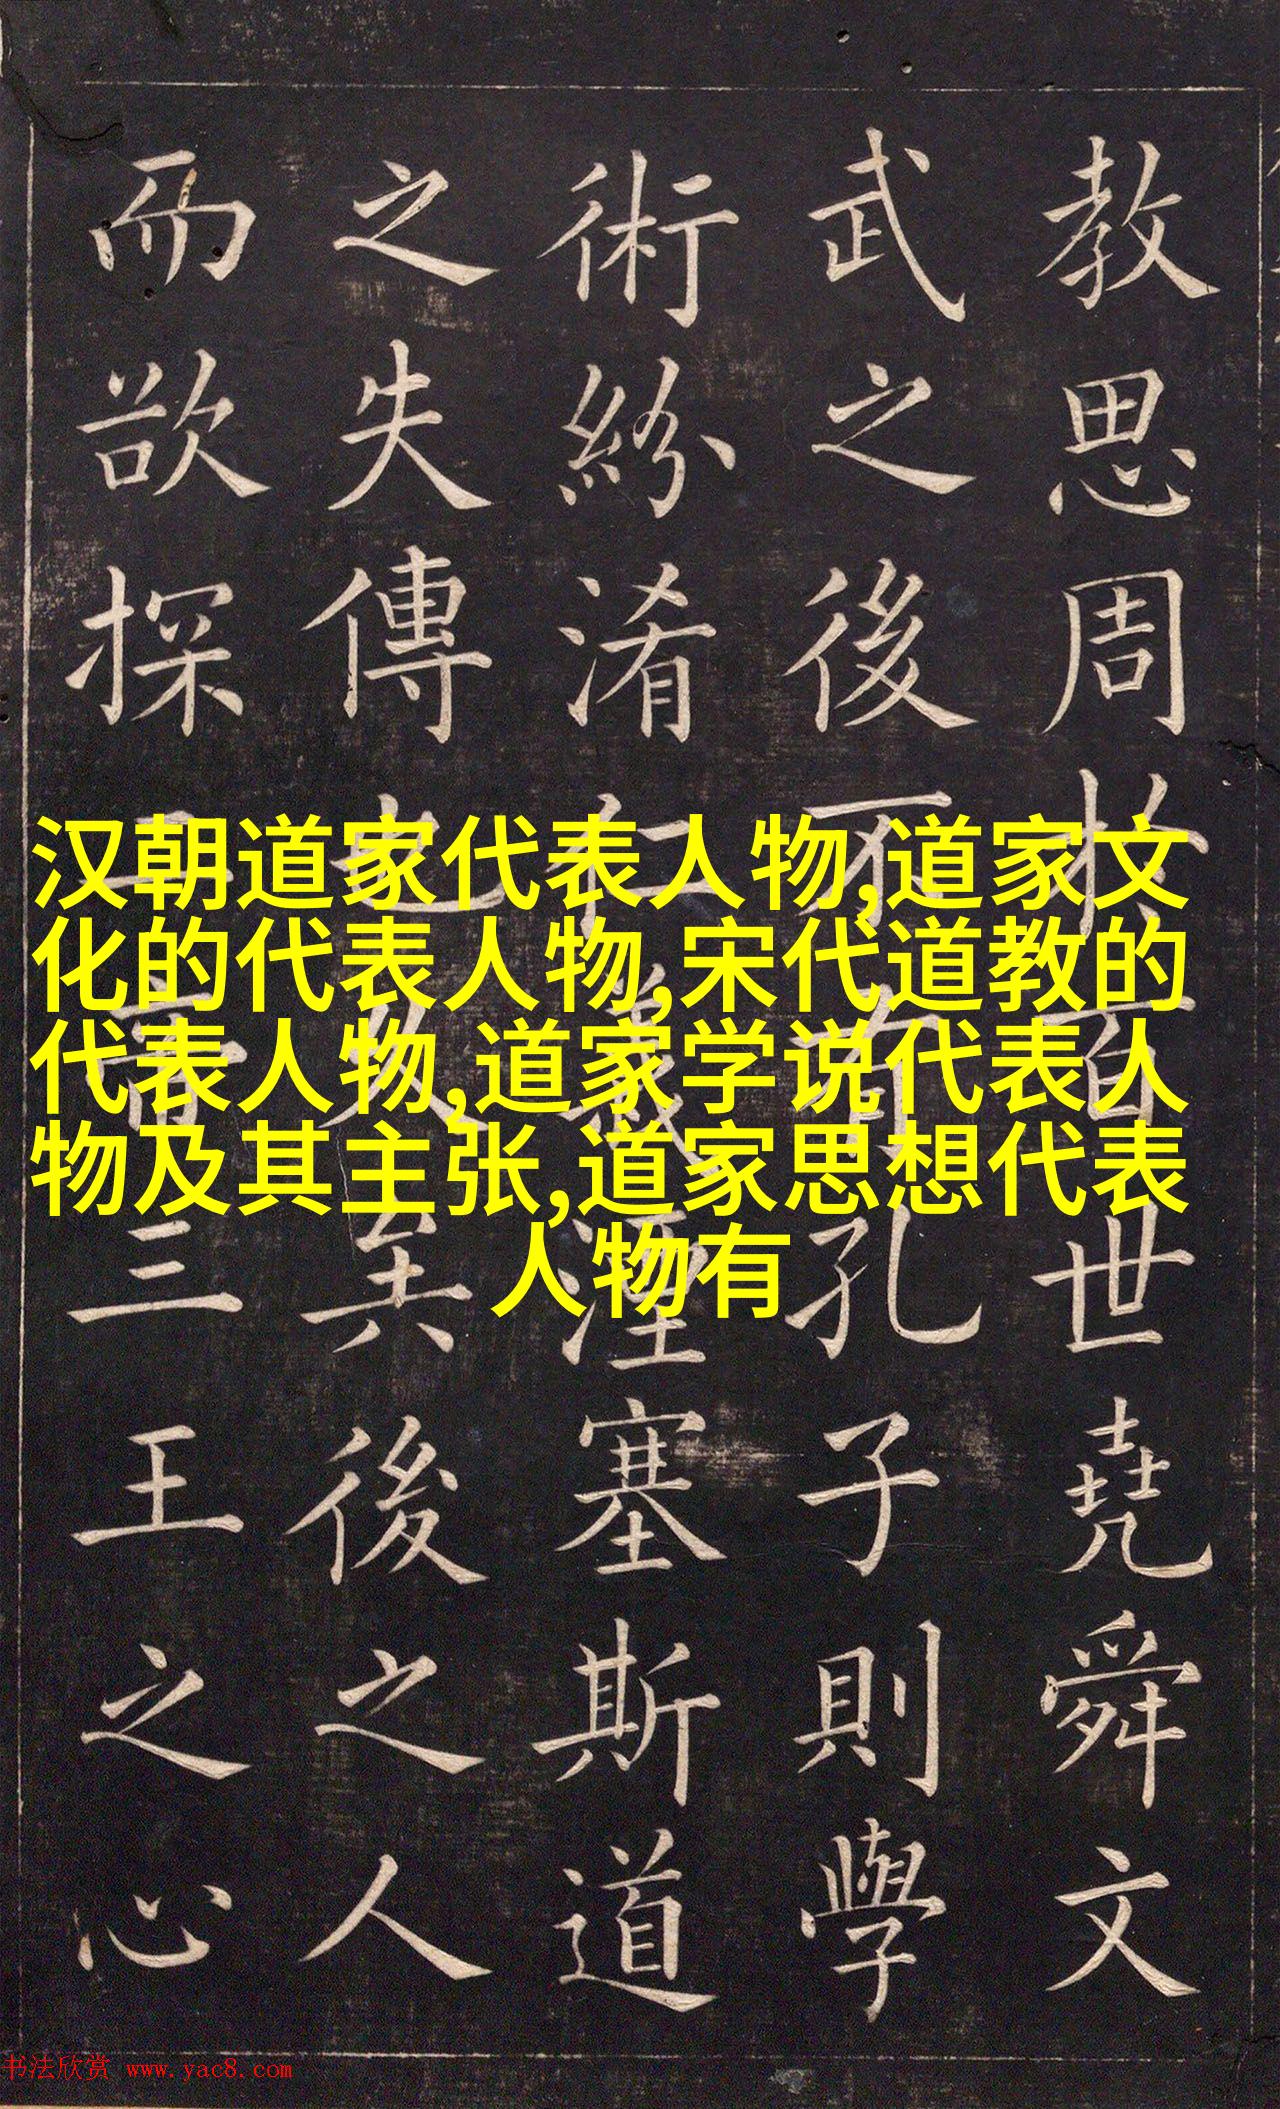 教思周於百世堯舜文
武之後不有孔子則學
術紛淆仁義湮塞斯道
之失傳也久矣後之人
而欲探二帝三王之心
汉朝道家代表人物,道家文
化的代表人物,宋代道教的
代表人物,道家学说代表人
物及其主张,道家思想代表
人物有
书法欣赏 www.yac8.com